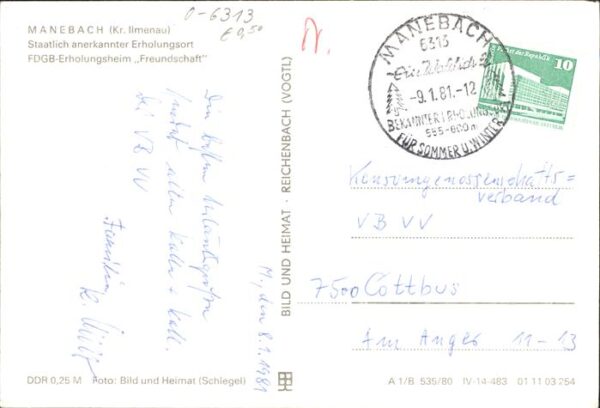 o-6313
€0,50
MANEBACH (Kr. Ilmenau)
Staatlich anerkannter Erholungsort
FDGB-Erholungsheim „Freundschaft"
MANEBACH
6313
-9.1.81.-12
585-800m
FÜR SOMMER U. WINTER
Palast der Republik
10
Die besten Urlaubsgrüße
allen
bei VB VV
Familie
M., den 8.1.1981
BILD UND HEIMAT · REICHENBACH (VOGTL)
Konsumgenossenschafts=
verband
VB VV
7500 Cottbus
Am Anger 11-13
DDR 0,25 M Foto: Bild und Heimat (Schlegel)
A 1/B 535/80 IV-14-483 01 11 03 254